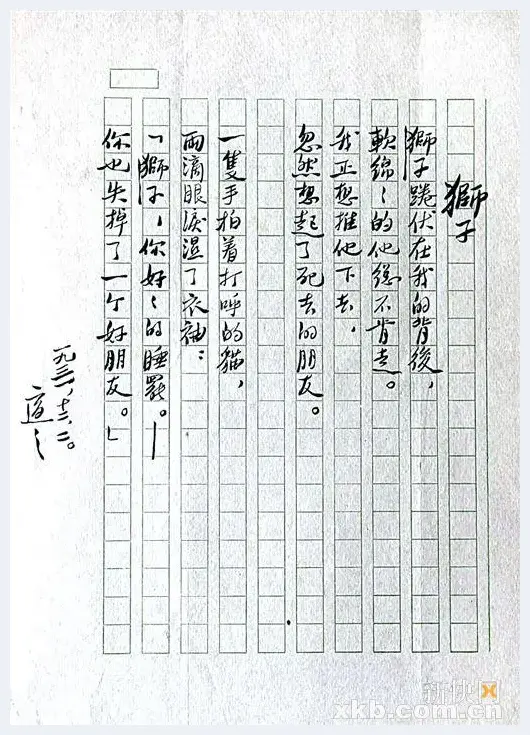 獅子
獅子踡伏在我的背後，
軟綿〻的他總不肯走。
我正想推他下去，
忽然想起了死去的朋友。
一隻手拍着打呼的貓，
兩滴眼淚濕了衣袖：
「獅子，你好〻的睡罷。—
你也失掉了一个好朋友。」
一九三一、十二、二。
適之
新快
xkb.com.cn